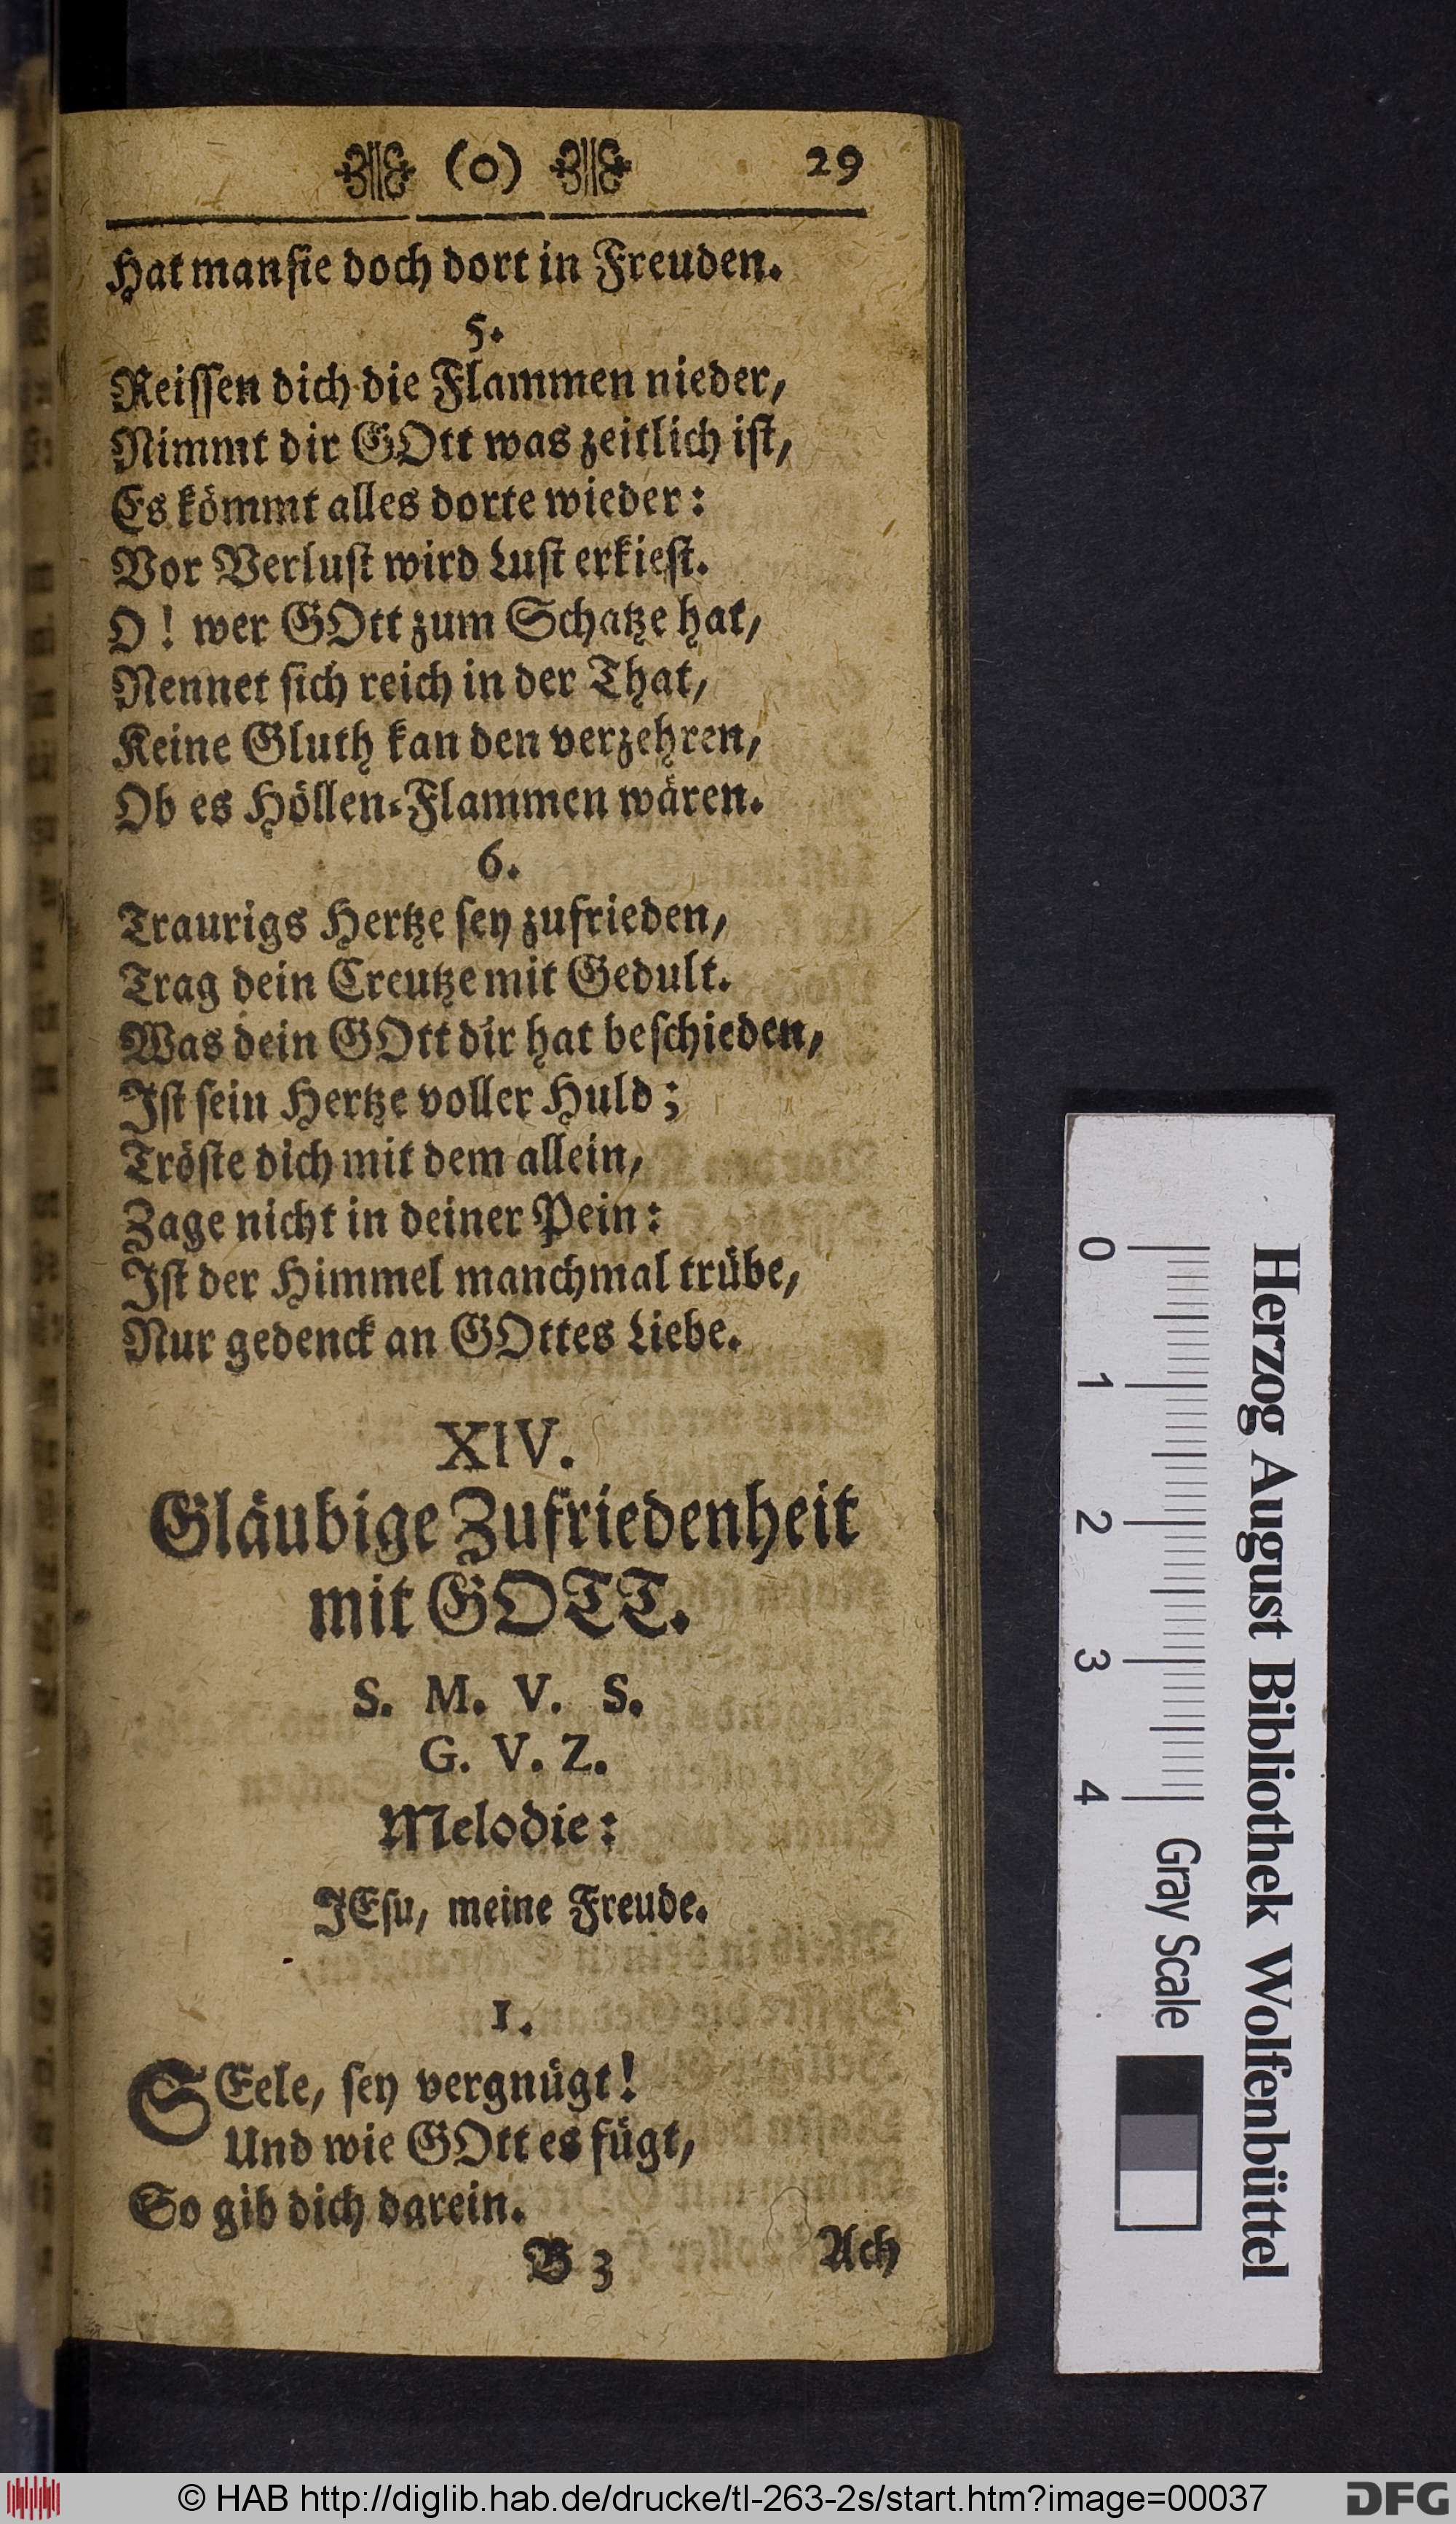 (o) 29
Hat man sie doch dort in Freuden.
5.
Reissen dich die Flammen nieder,
Nimmt dir GOtt was zeitlich ist,
Es kömmt alles dorte wieder:
Vor Verlust wird Lust erkiest.
O! wer GOtt zum Schatze hat,
Nennet sich reich in der That,
Keine Gluth kan den verzehren,
Ob es Höllen-Flammen wären.
6.
Traurigs Hertze sey zufrieden,
Trag dein Creutze mit Gedult.
Was dein GOtt dir hat beschieden,
Ist sein Hertze voller Huld;
Tröste dich mit dem allein,
Zage nicht in deiner Pein:
Ist der Himmel manchmal trübe,
Nur gedenck an GOttes Liebe.
XIV.
Gläubige Zufriedenheit
mit GOTT.
S. M. V. S.
G. V. Z.
Melodie:
JEsu, meine Freude.
1.
SEele, sey vergnügt!
Und wie GOtt es fügt,
So gib dich darein.
B 3 Ach
Herzog August Bibliothek Wolfenbüttel
0 1 2 3 4 Gray Scale
© HAB http://diglib.hab.de/drucke/tl-263-2s/start.htm?image=00037
DFG